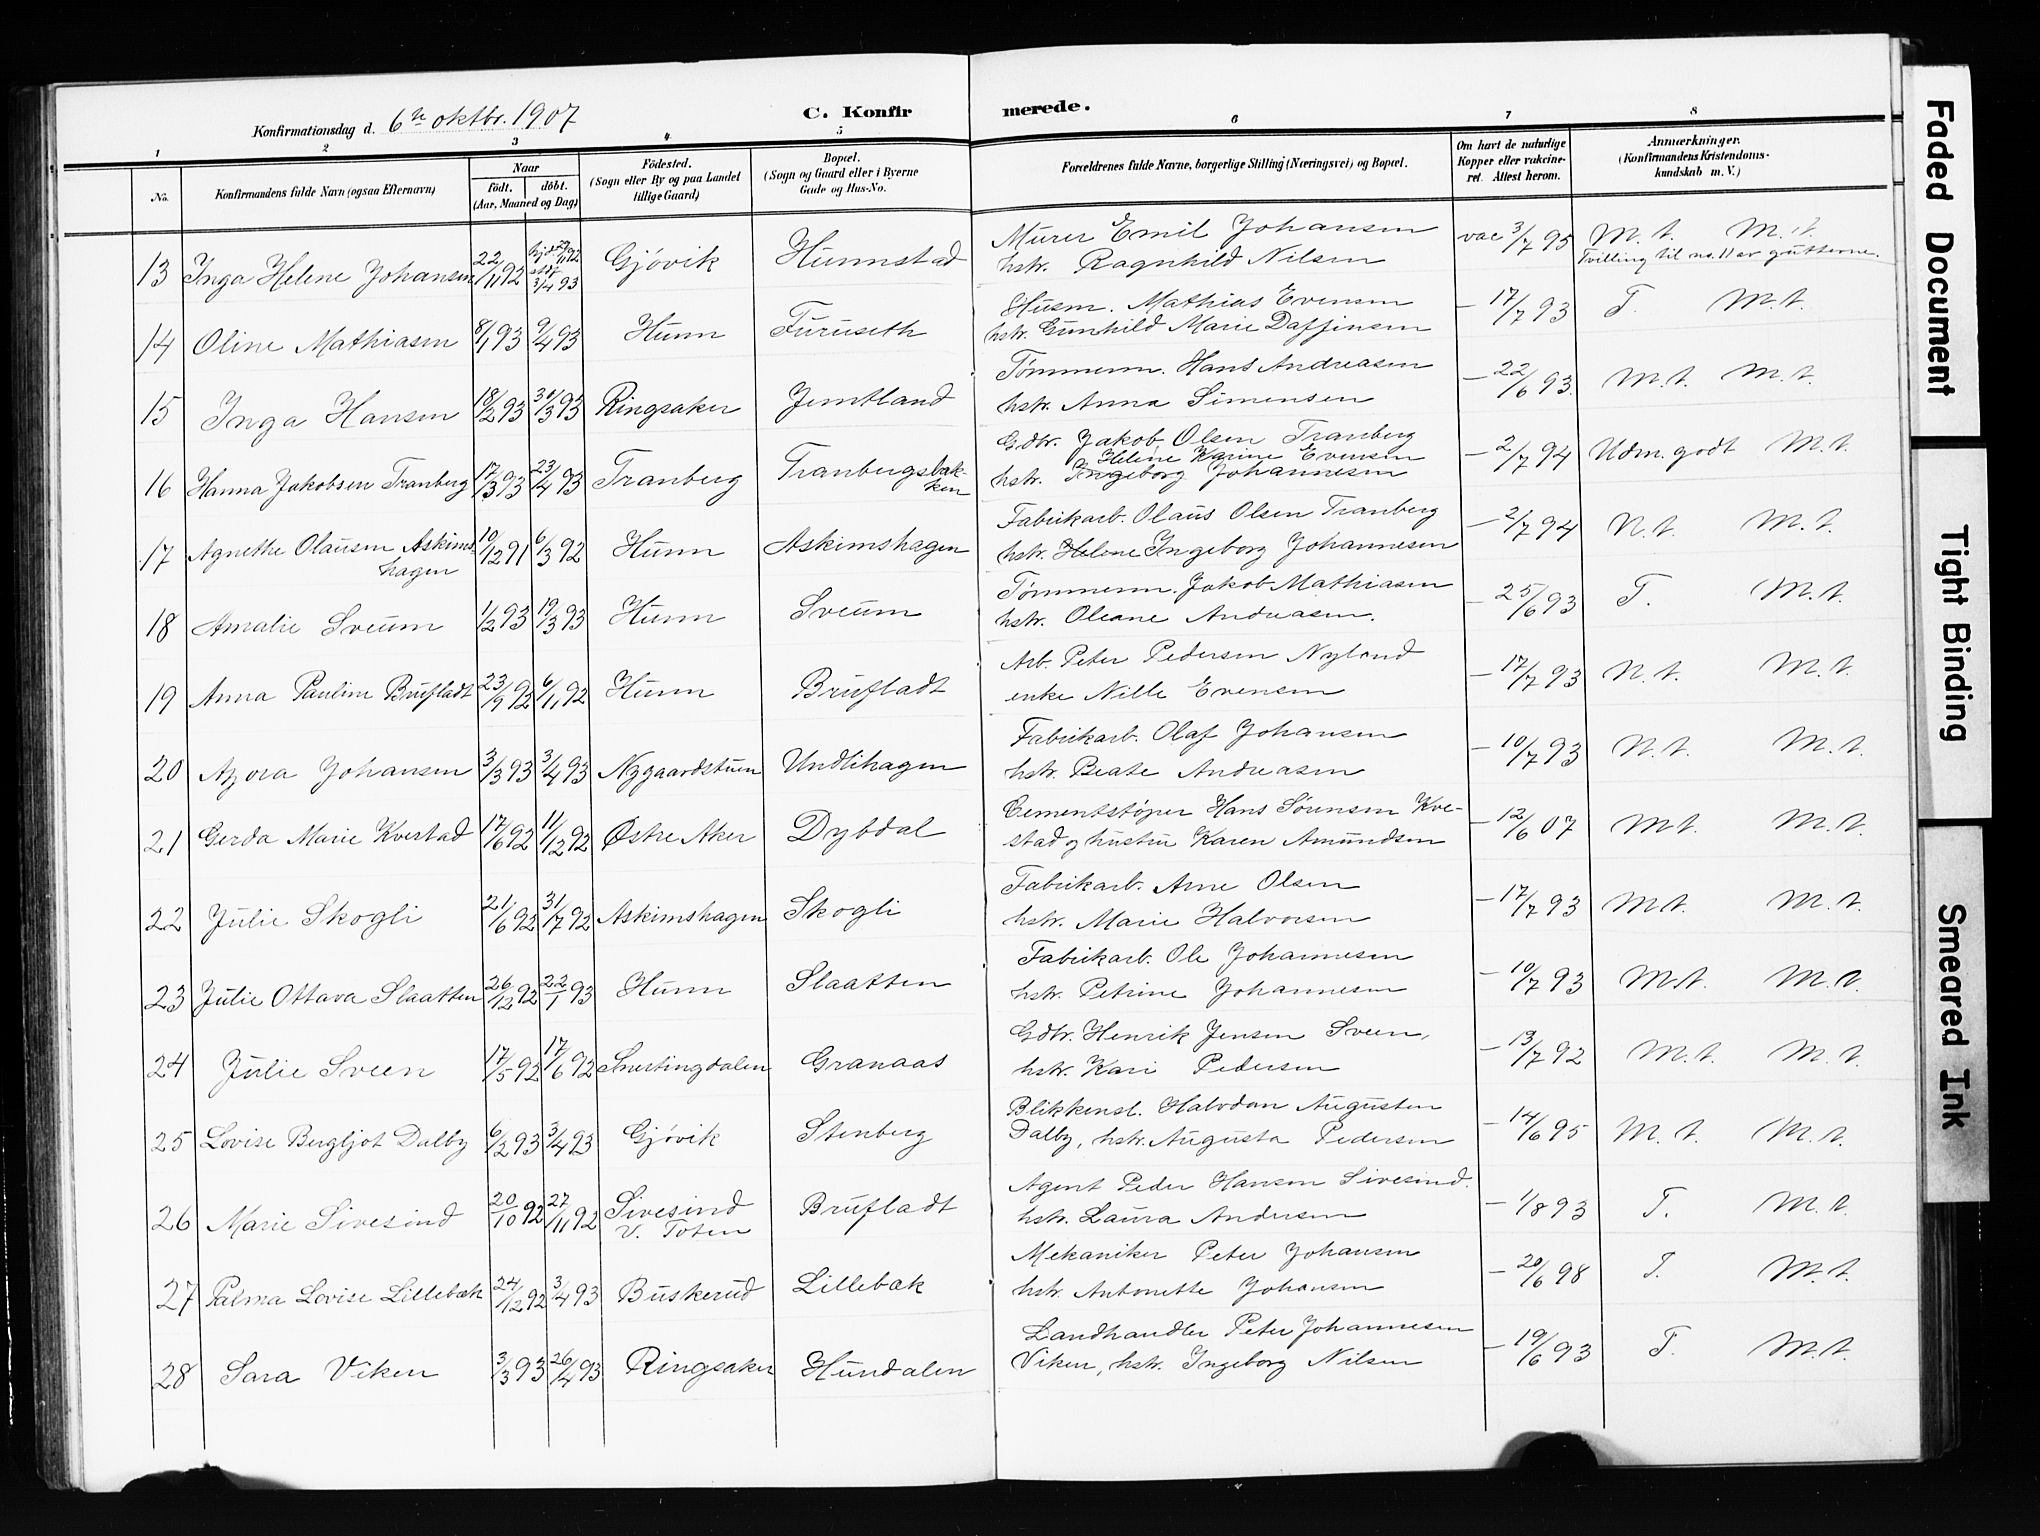 Konfirmationsdag d. 6te oktbr. 1907 C. Konfirmerede.
1 2 3 4 5 6 7 8
No. Konfirmandens fulde Navn (ogsaa Efternavn) Naar født. døbt. (Aar, Maaned og Dag) Fødested. (Sogn eller By og paa Landet tillige Gaard) Bopæl. (Sogn og Gaard eller i Byerne Gade og Hus-No. Forældrenes fulde Navne, borgerlige Stilling (Næringsvei) og Bopæl. Om havt de naturlige Kopper eller vaccineret. Attest herom. Anmærkninger. (Konfirmandens Kristendomskundskab m. V.)
13 Inga Helene Johansen 22/11 92 hjd. 29/11 92 stdf. 3/4 93 Gjøvik Hunnstad Murer Emil Johansen hstr. Ragnhild Nilsen vac 3/7 95 M. t. M. t. Tvilling til no. 11 av gutterne.
14 Oline Mathiasen 8/1 93 9/4 93 Hunn Furuseth Husm. Mathias Evensen hstr. Gunhild Marie Daffinsen – 17/7 93 T. M. t.
15 Inga Hansen 18/2 93 30/3 93 Ringsaker Jemtland Tømmerm. Hans Andreasen hstr. Anna Simensen – 22/6 93. M. t. M. t.
16 Hanna Jakobsen Tranberg 17/3 93 23/4 93 Tranberg Tranbergsbakken Gdbr. Jakob Olsen Tranberg hstr. Helene Karine Evensen Ingeborg Johannesen – 2/7 94 Udm. godt M. t.
17 Agnethe Olausen Askimshagen 10/12 91 6/3 92 Hunn Askimshagen Fabrikarb. Olaus Olsen Tranberg hstr. Helene Ingeborg Johannesen – 2/7 94 N. t. M. t.
18 Amalie Sveum 1/2 93 19/3 93 Hunn Sveum Tømmerm. Jakob Mathiasen hstr. Oleane Andreasen. – 25/6 93 T. M. t.
19 Anna Pauline Brufladt 23/9 92 6/11 92 Hunn Brufladt Arb. Peter Pedersen Nyland enke Nille Evensen – 17/7 93 N. t. M. t.
20 Azora Johansen 3/3 93 3/4 93 Nygaardstuen Undlihagen Fabrikarb. Olaf Johansen hstr. Beate Andreasen – 10/7 93 N. t. M. t.
21 Gerda Marie Kvestad 17/6 92 11/12 92 Østre Aker Dybdal Cementstøper Hans Sørensen Kvestad og hustru Karen Amundsen – 12/6 07 M t. M. t.
22 Julie Skogli 21/6 92 31/7 92 Askimshagen Skogli Fabrikarb. Arne Olsen hstr. Marie Halvorsen – 17/7 93 M t. M. t.
23 Julie Ottava Slaatten 26/12 92 22/1 93 Hunn Slaatten Fabrikarb. Ole Johannesen hstr. Petrine Johannesen – 10/7 93 M t. M. t.
24 Julie Sveen 17/5 92 17/6 92 Snertingdalen Granaas Gdbr. Henrik Jensen Sveen, hstr. Kari Pedersen – 13/7 92 M. t. M. t.
25 Lovise Bergljot Dalby 6/2 93 3/4 93 Gjøvik Stenberg Blikkensl. Halvdan Augusten Dalby, hstr. Augusta Pedersen – 14/6 95 M. t. M. t.
26 Marie Sivesind 20/10 92 27/11 92 Sivesind V. Toten Brufladt Agent Peder Hansen Sivesind. hstr. Laura Andersen – 1/8 93 T. M. t.
27 Palma Lovise Lillebæk 24/12 92 3/4 93 Buskerud Lillebæk Mekaniker Peter Johansen hstr. Antonette Johansen – 20/6 98 T. M. t.
28 Sara Viken 3/3 93 26/4 93 Ringsaker Hundalen Landhandler Peter Johannesen Viken, hstr. Ingeborg Nilsen – 19/6 93 T. M. t.
Faded Document
Tight Binding
Smeared Ink